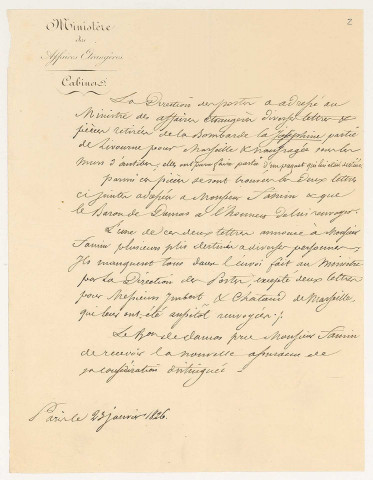 2
Ministère
des
Affaires Etrangères
Cabinet
La Direction des postes a adressé au
Ministre des affaires étrangères divers lettres &
pièces retirées de la Bombarde la Joséphine partie
de Livourne pour Marseille & naufragée sous les
murs d'antibes, elles ont paru faire partie d'un paquet qui lui était adressé
parmi ces pièces se sont trouvées les deux lettres
ci jointes adressées à Monsieur & que
le Baron de Damas a l'honneur de lui renvoyer.
L'une de ces deux lettres annonce à Monsieur
plusieurs plis destinés à diverses personnes
Ils manquent tous dans l'envoi fait au Ministre
par la Direction des Postes, excepté deux lettres
pour Messieurs Imbert & Chataud de Marseille,
qui leur ont été aussitôt renvoyées ;
Le Bon de damas prie Monsieur
de recevoir la nouvelle assurance de
sa considération distinguée
Paris le 23 janvier 1826.